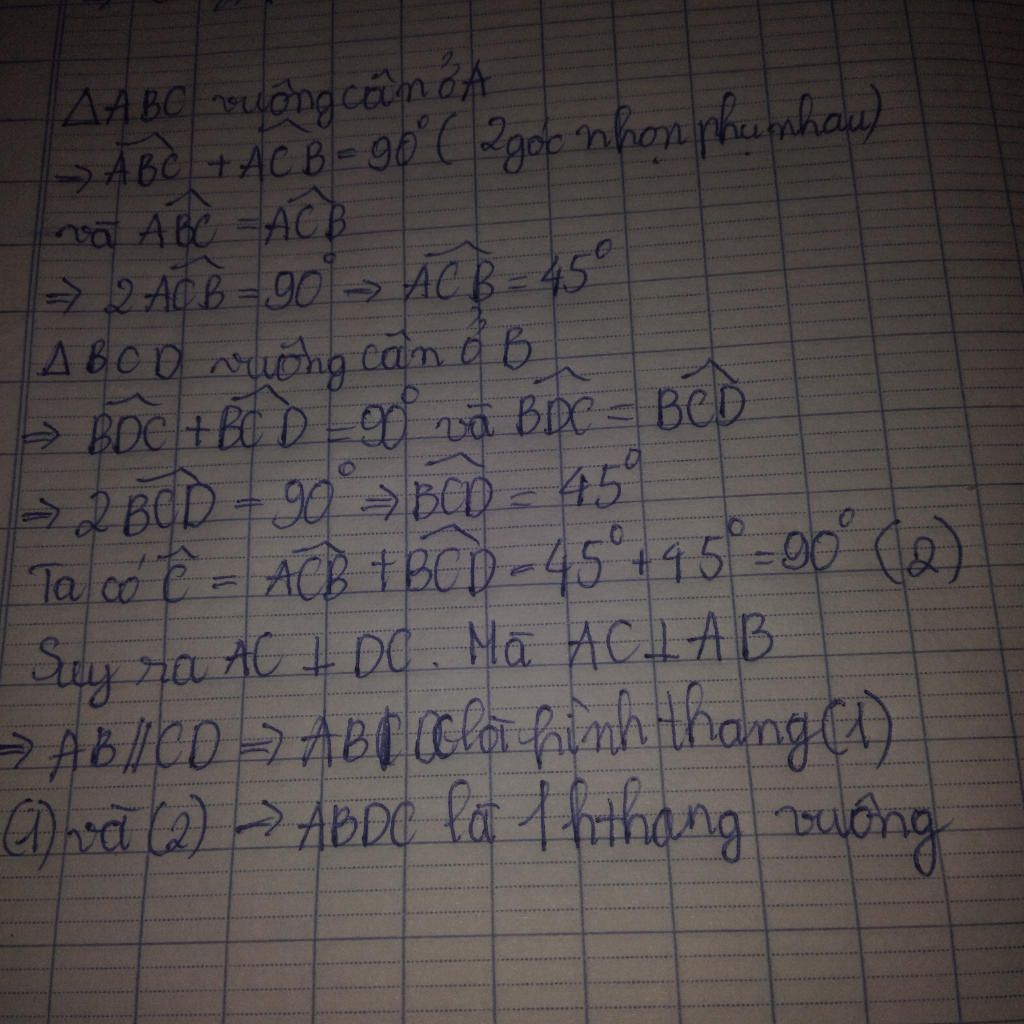 ΔABC vuông cân ở A
→ ABC + ACB = 90° ( 2 góc nhọn phụ nhau)
và ABC = ACB
⇒ 2ACB = 90° ⇒ ACB = 45°
ΔBCD vuông cân ở B
⇒ BDC + BCD = 90° và BDC = BCD
⇒ 2BCD = 90° ⇒ BCD = 45°
Ta có C = ACB + BCD = 45° + 45° = 90° (2)
Suy ra AC ⊥ DC. Mà AC ⊥ AB
⇒ AB // CD ⇒ ABDC là hình thang (1)
(1) và (2) ⇒ ABDC là 1 hthang vuông